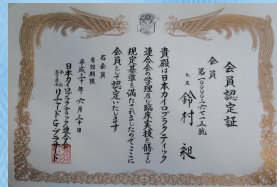 会員認定証
会員
氏名 鈴村 昶
貴殿は日本カイロプラクティック
連合会の学理及び臨床実技を修得し
規定基準を満たされましたのでここに
会員として認定いたします
右会員
有効期限
平成二十年六月三十日
日本カイロプラクティック連合会